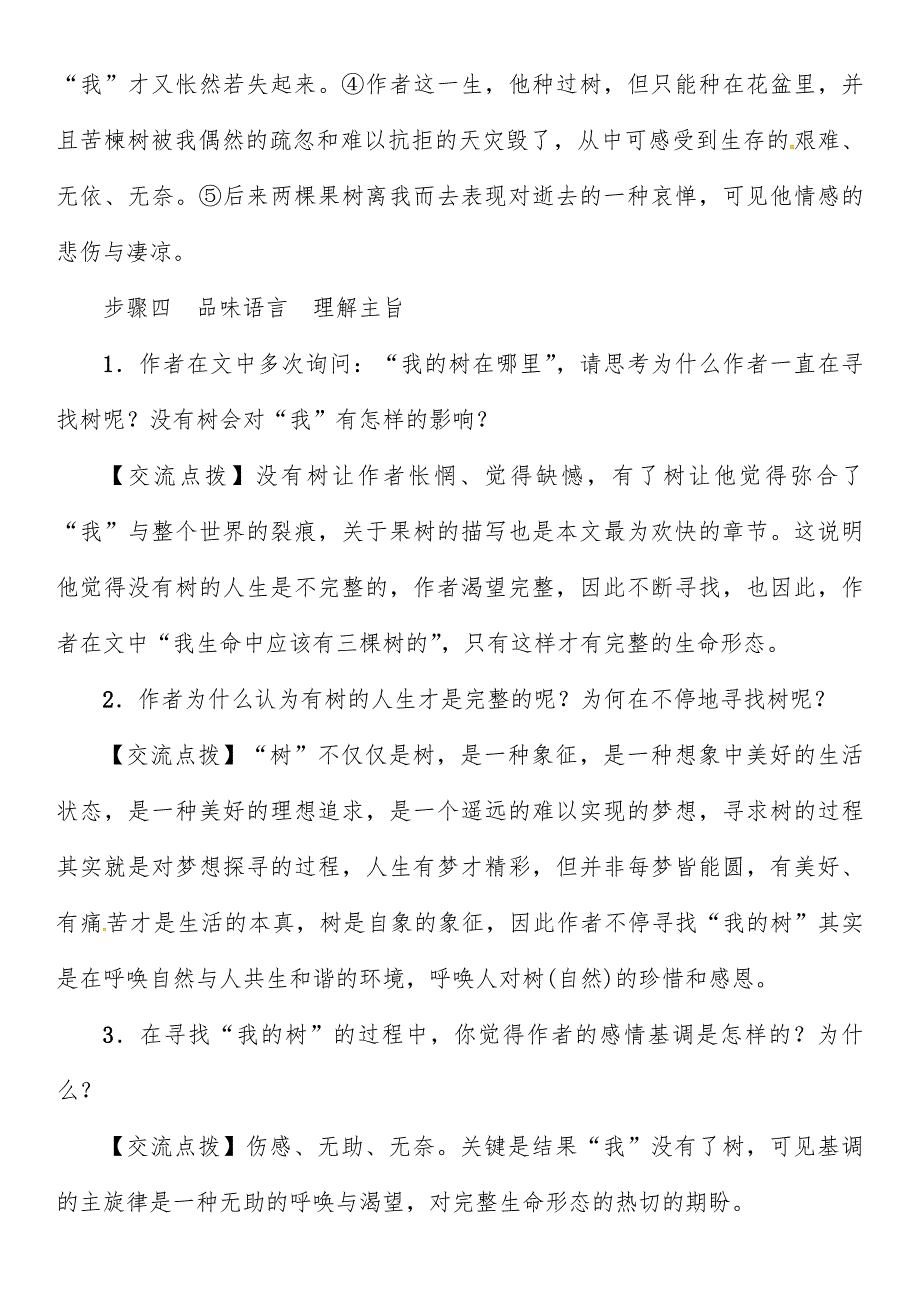 “我”才又怅然若失起来。④作者这一生，他种过树，但只能种在花盆里，并
且苦楝树被我偶然的疏忽和难以抗拒的天灾毁了，从中可感受到生存的艰难、
无依、无奈。⑤后来两棵果树离我而去表现对逝去的一种哀惮，可见他情感的
悲伤与凄凉。
步骤四　品味语言　理解主旨
1．作者在文中多次询问：“我的树在哪里”，请思考为什么作者一直在寻
找树呢？没有树会对“我”有怎样的影响？
【交流点拨】没有树让作者怅惘、觉得缺憾，有了树让他觉得弥合了
“我”与整个世界的裂痕，关于果树的描写也是本文最为欢快的章节。这说明
他觉得没有树的人生是不完整的，作者渴望完整，因此不断寻找，也因此，作
者在文中“我生命中应该有三棵树的”，只有这样才有完整的生命形态。
2．作者为什么认为有树的人生才是完整的呢？为何在不停地寻找树呢？
【交流点拨】“树”不仅仅是树，是一种象征，是一种想象中美好的生活
状态，是一种美好的理想追求，是一个遥远的难以实现的梦想，寻求树的过程
其实就是对梦想探寻的过程，人生有梦才精彩，但并非每梦皆能圆，有美好、
有痛苦才是生活的本真，树是自象的象征，因此作者不停寻找“我的树”其实
是在呼唤自然与人共生和谐的环境，呼唤人对树(自然)的珍惜和感恩。
3．在寻找“我的树”的过程中，你觉得作者的感情基调是怎样的？为什
么？
【交流点拨】伤感、无助、无奈。关键是结果“我”没有了树，可见基调
的主旋律是一种无助的呼唤与渴望，对完整生命形态的热切的期盼。